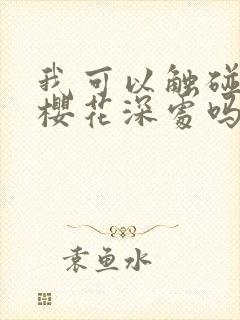 我可以触碰
樱花深处吗
袁鱼水